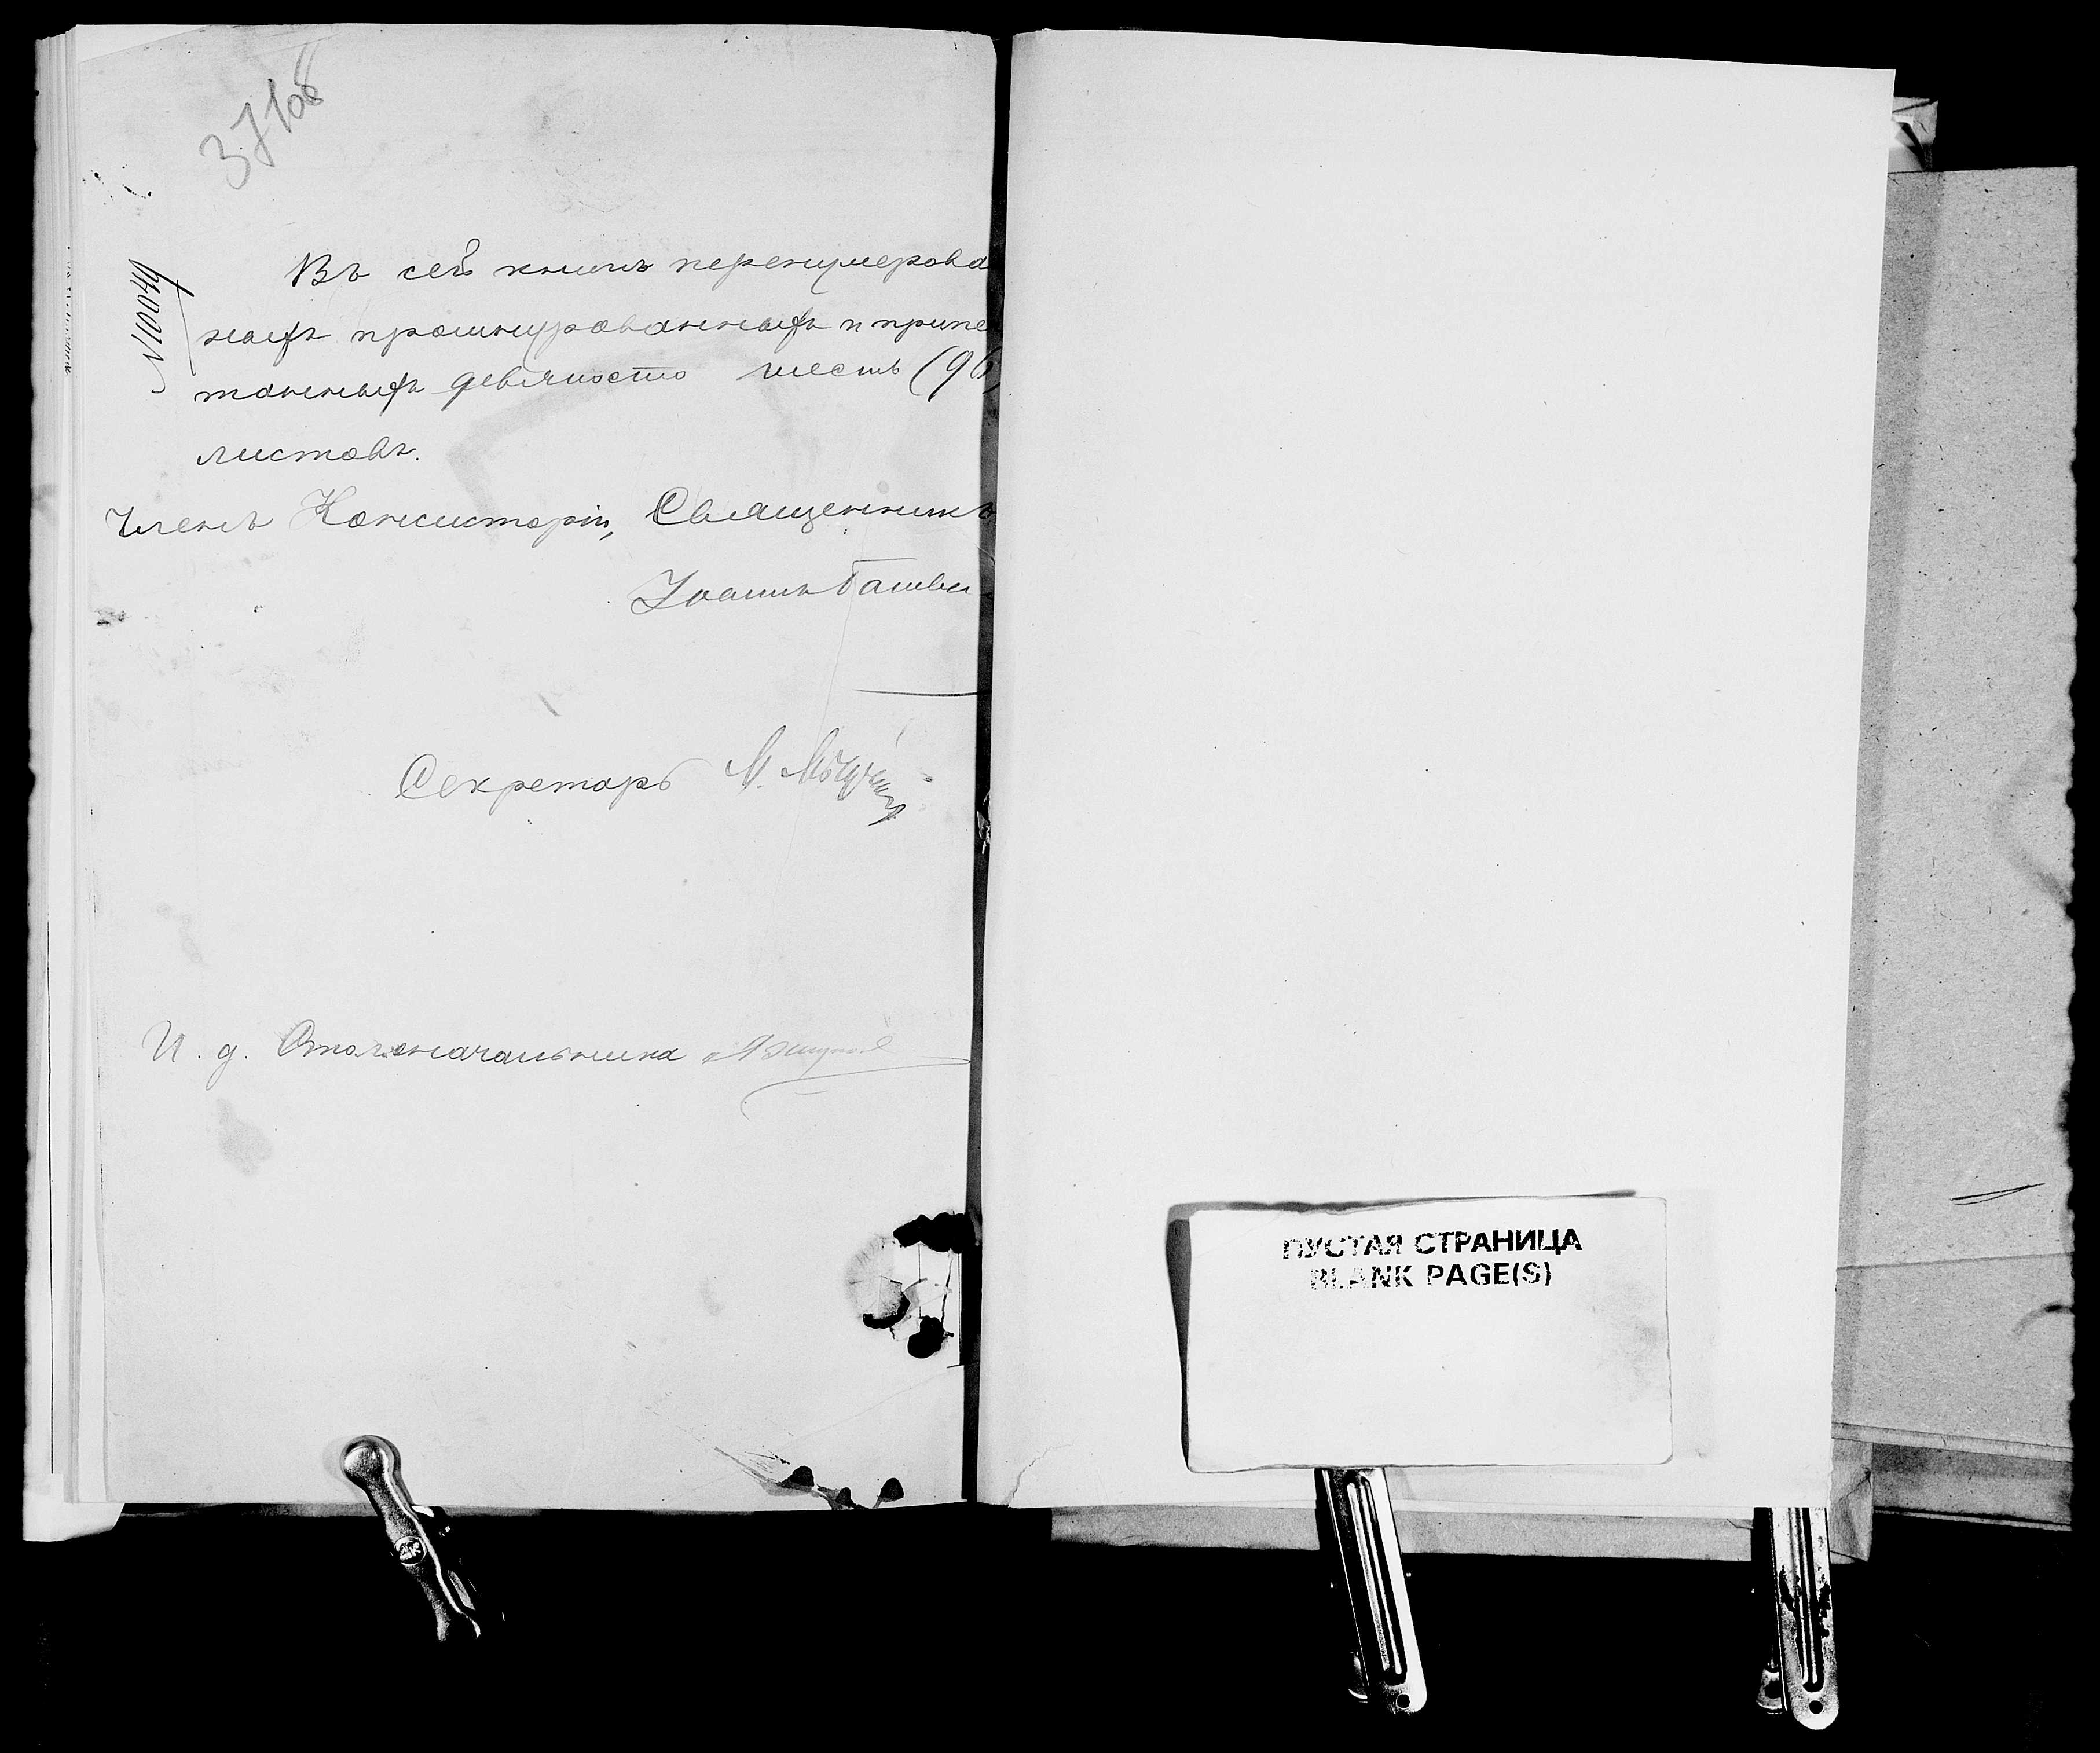 371об
№10044
Въ сей книгѣ перенумерова
ныхъ прошнурованныхъ и припе
танныхъ девяносто шесть (96)
листовъ.
Членъ Консисторіи, Священникъ
Іоаннъ
Секретарь М.
И. д. Столоначальника
ПУСТАЯ СТРАНИЦА
BLANK PAGE(S)